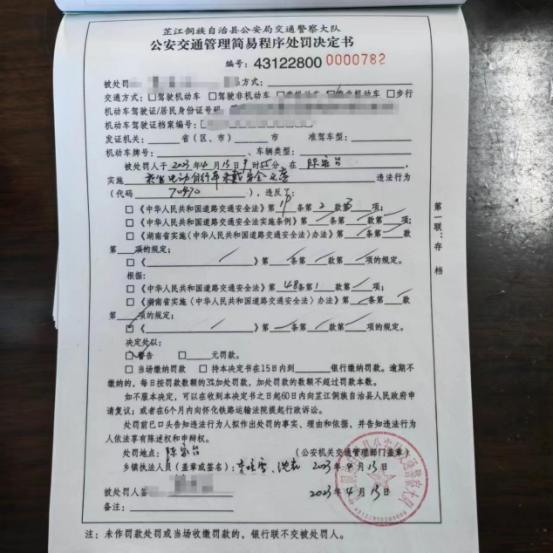 芷江侗族自治县公安局交通警察大队
公安交通管理简易程序处罚决定书
编号：43122800 0000782
被处罚 方式：
交通方式：□驾驶机动车 □驾驶非机动车 机动车 □步行
机动车驾驶证/居民身份证号码
机动车驾驶证档案编号：
发证机关： 省（区、市） 市 准驾车型：
机动车牌号： 车辆类型：
被处罚人于2023年4月15日9时55分在
实施 乘坐电动自行车未戴安全头盔 违法行为
（代码 ），违反了：
□《中华人民共和国道路交通安全法》第 条第2款 项；
□《中华人民共和国道路交通安全法实施条例》第 条第 款第 项；
□《湖南省实施〈中华人民共和国道路交通安全法〉办法》第 条第 款
第 项的规定；
□《 》第 条第 款第 项的规定。
根据：
□《中华人民共和国道路交通安全法》第48条第1款第 项；
□《湖南省实施〈中华人民共和国道路交通安全法〉办法》第 条第 款
第 项的规定；
《 》第 条第 款第 项的规定。
决定处以：
警告 □ 元罚款。
□ 当场缴纳罚款 □ 持本决定书在15日内到 银行缴纳罚款。逾期不
缴纳的，每日按罚款数额的3%加处罚款，加处罚款的数额不超过罚款本数。
如不服本决定，可以在收到本决定书之日起60日内向芷江侗族自治县人民政府
申请复议；或者在6个月内向怀化铁路运输法院提起行政诉讼。
处罚前已口头告知违法行为人拟作出处罚的事实、理由和依据，并告知违法行为
人依法享有陈述权和申辩权。
处罚地点： （公安机关交通管理部门盖章）
乡镇执法人员（盖章或签名）： 2023年4月15日
被处罚人签 2023年4月15日
备注：
注：未作罚款处罚或当场收缴罚款的，银行联不交被处罚人。
第一联：存档